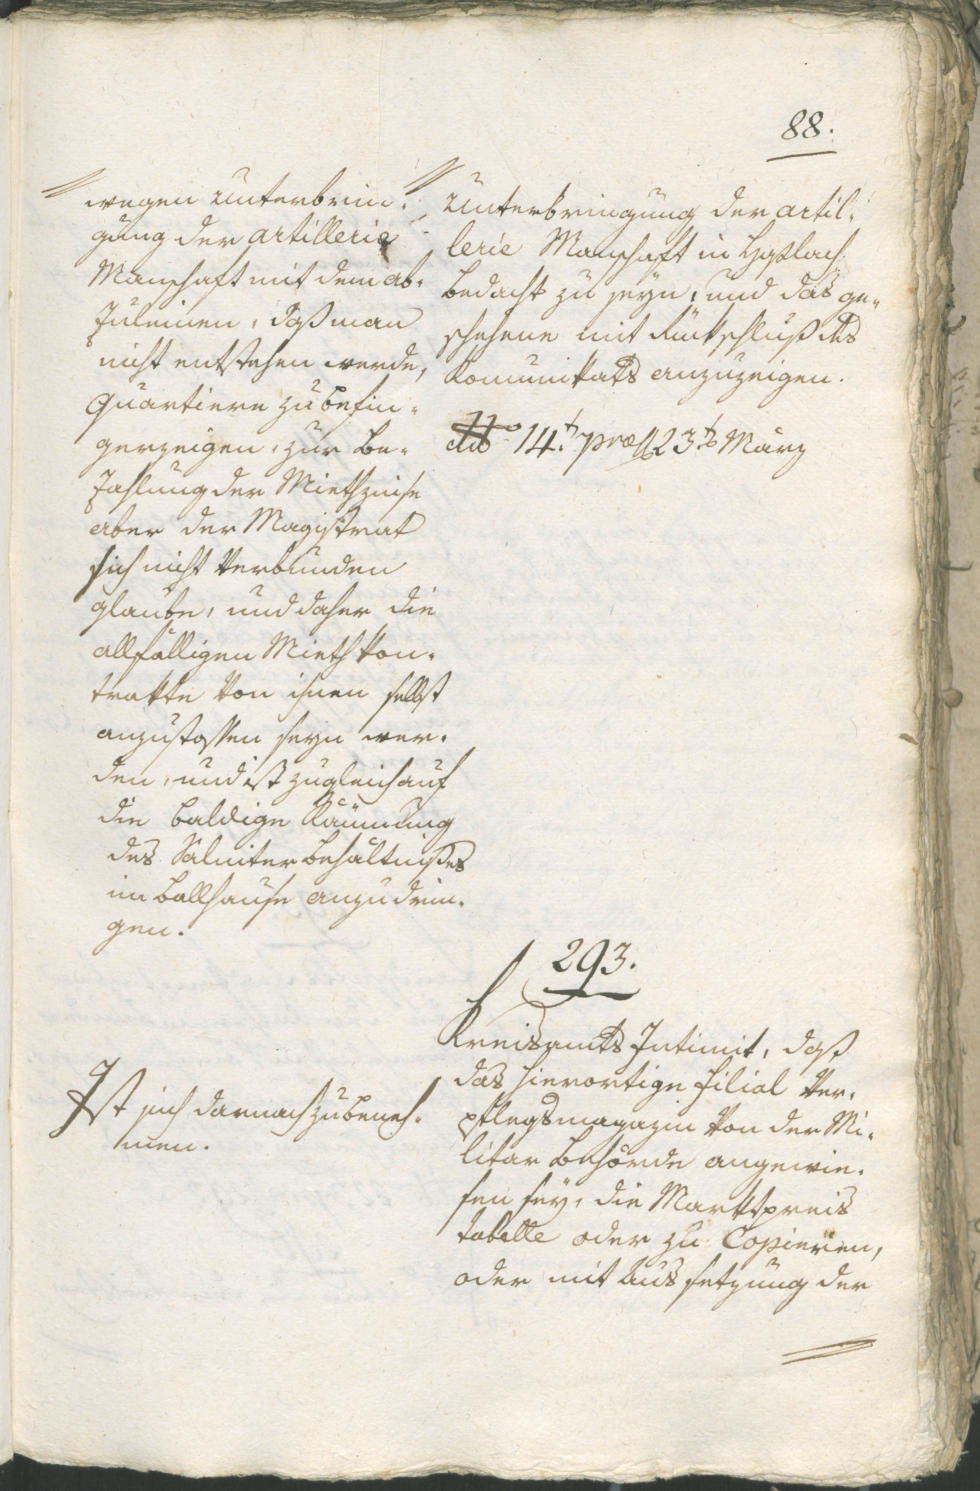 88.
wegen Unterbrin-
gung der Artillerie
Manschaft mit dem ab-
zuleinen, daß man
nicht entstehen werde,
Quartiere zu
zur Be-
zahlung der Miethzinse
aber der Magistrat
sich nicht verbunden
glaube, und daher die
allfälligen Miethkon-
trakte von ihnen selbst
anzustossen seyn wer-
den, und ist zugleich auf
die baldige Räumung
des Saliterbehältnißes
im Ballhause anzudrin-
gen.
Unterbringung der Artil-
lerie Manschaft in
bedacht zu seyn, und das ge-
schehene mit Rückschluß des
Komunikats anzuzeigen.
ddo 14t praes 23t März
293.
Kreisamts Intimat, daß
das hierortige Filial Ver-
pflegsmagazin von der Mi-
litar Behörde angewie-
sen sey, die Marktpreis
tabelle oder zu Copieren,
oder mit Aussetzung der
Ist sich darnach zu beneh-
men.